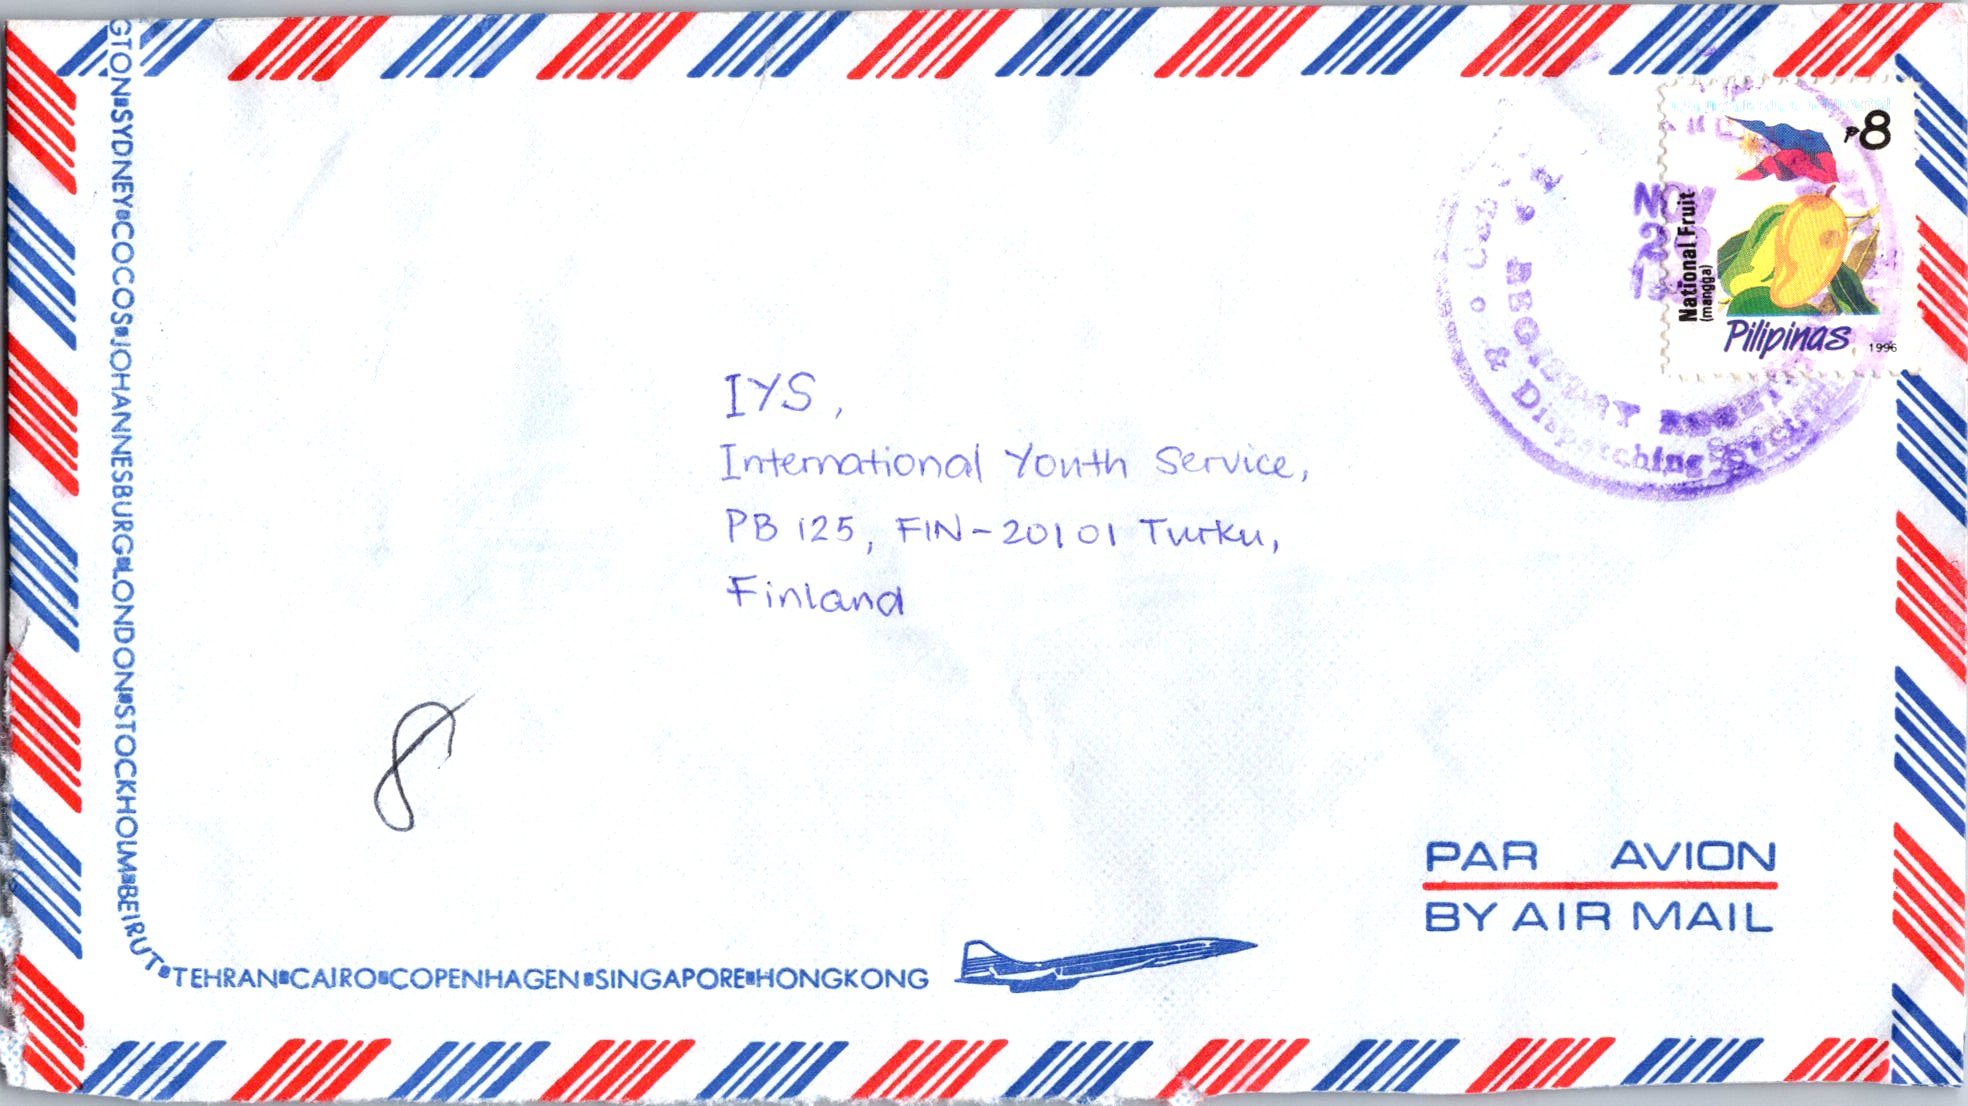 GTON▪SYDNEY▪COCOS▪JOHANNESBURG▪LONDON▪STOCKHOLM▪BEIRUT▪TEHRAN▪CAIRO▪COPENHAGEN▪SINGAPORE▪HONGKONG
₱8
National Fruit
(mangga)
Pilipinas
1996
NOV
REGISTRY
& Dispatching Section
IYS,
International Youth Service,
PB 125, FIN-20101 Turku,
Finland
8
PAR AVION
BY AIR MAIL